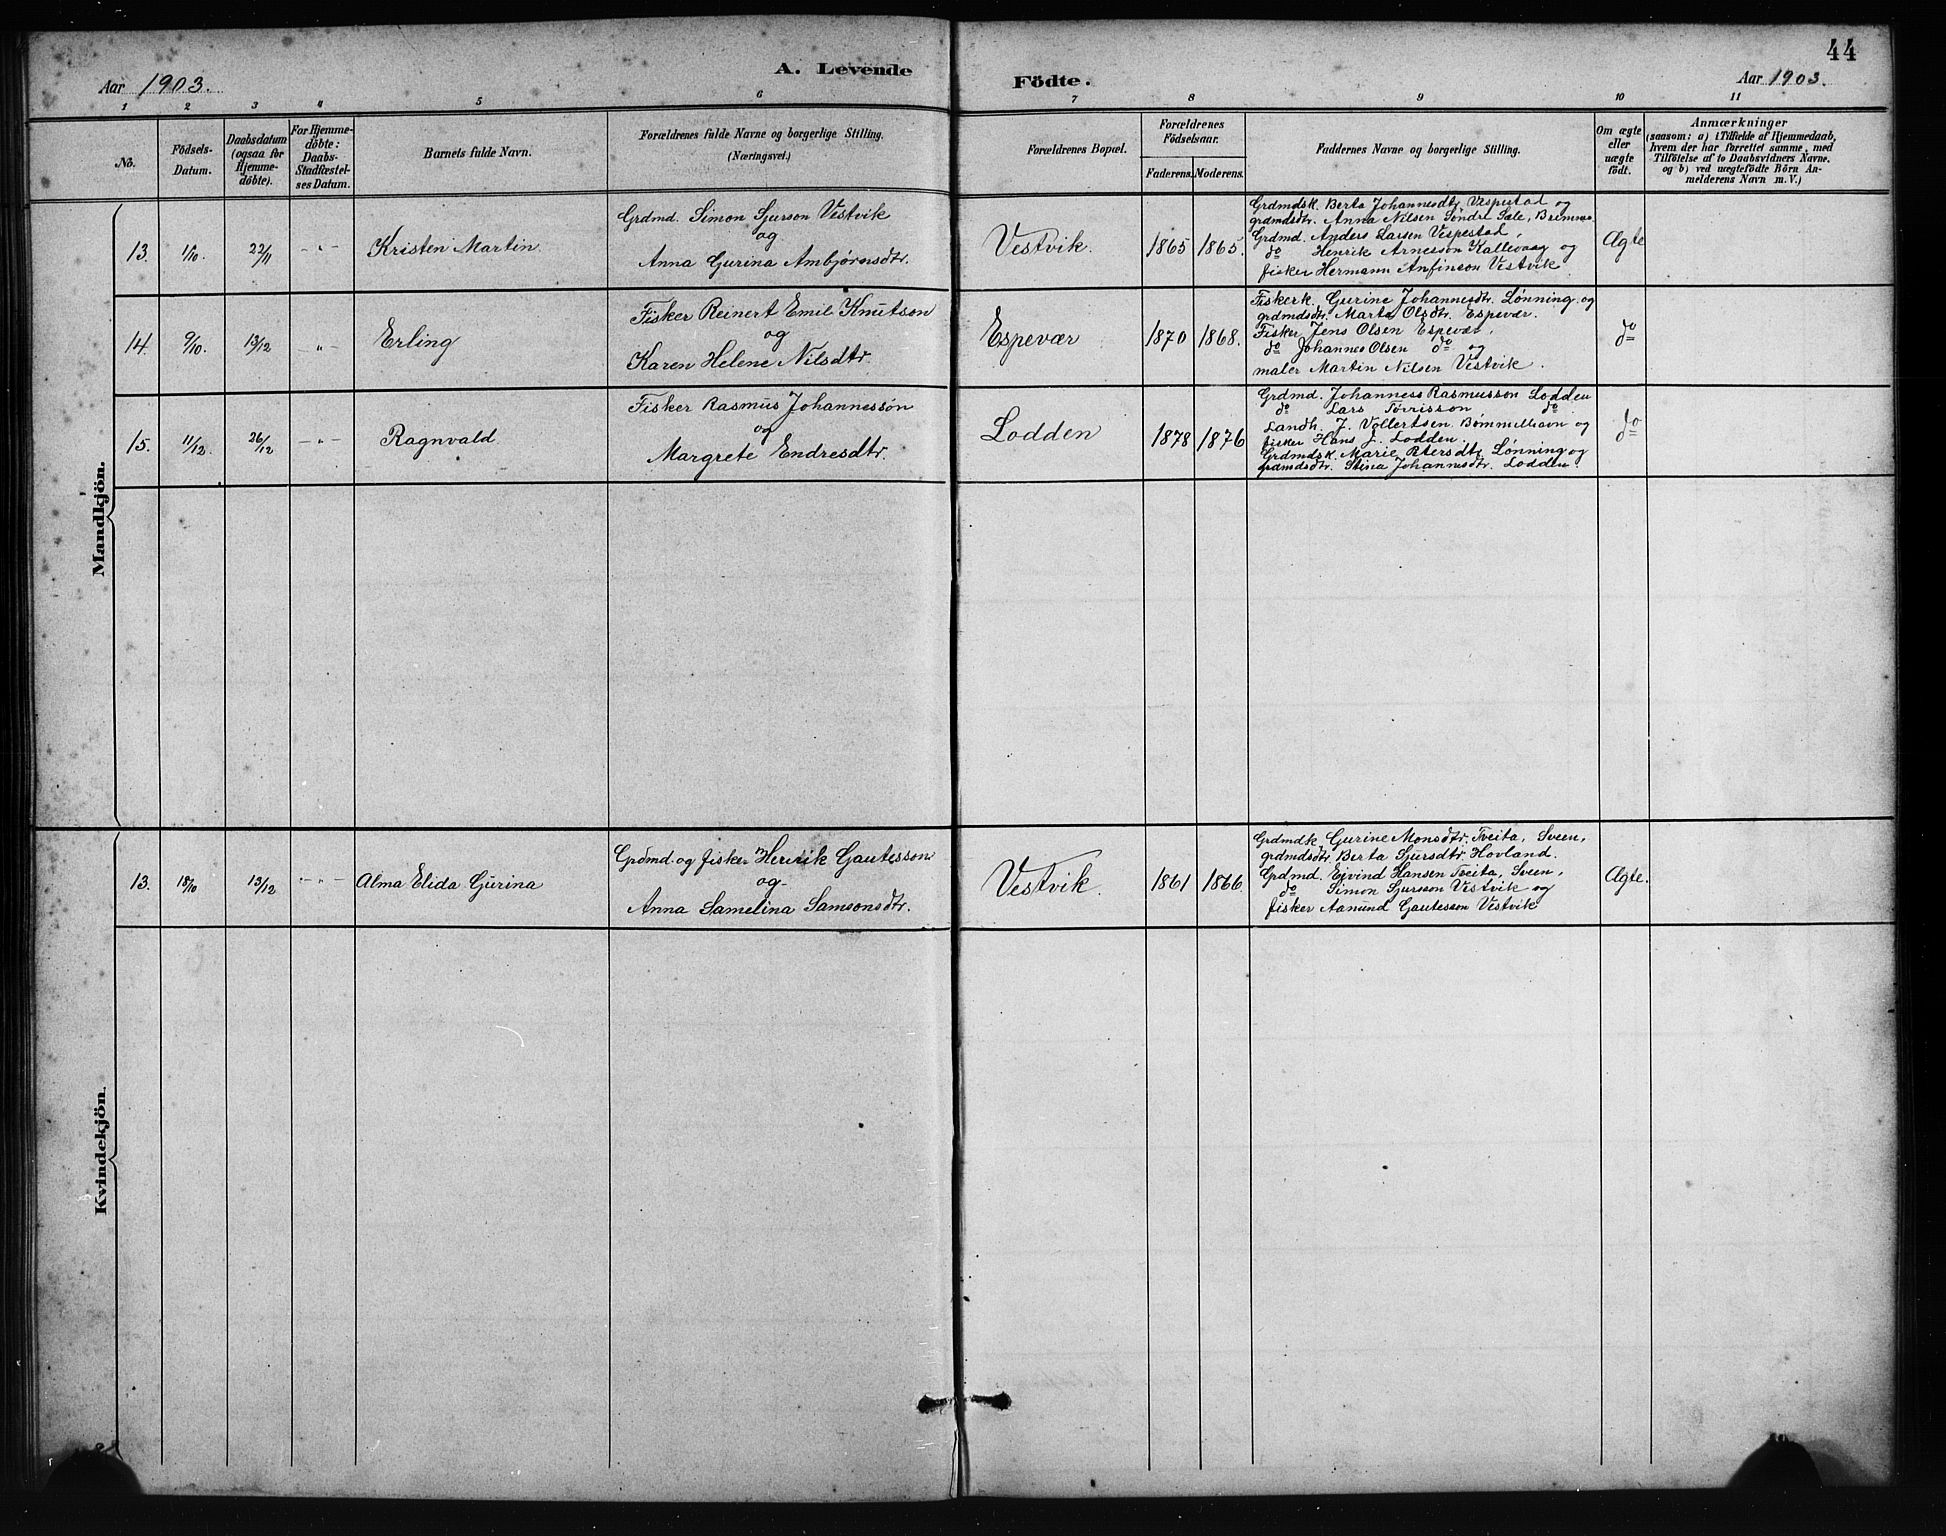 44
Aar 1903.
A. Levende
Födte.
Aar 1903.
1 2 3 4 5 6 7 8 9 10 11
No.
Födsels-
Datum.
Daabsdatum
(ogsaa for
Hjemme-
döbte).
For Hjemme-
döbte:
Daabs-
Stadfæstel-
ses Datum.
Barnets fulde Navn.
Forældrenes fulde Navne og borgerlige Stilling.
(Næringsvei.)
Forældrenes Bopæl.
Forældrenes
Födselsaar.
Faderens. Moderens.
Faddernes Navne og borgerlige Stilling.
Om ægte
eller
uægte
födt.
Anmærkninger
(saasom: a) i Tilfælde af Hjemmedaab,
hvem der har forrettet samme, med
Tilföielse af to Daabsvidners Navne.
og b) ved uægtefödte Börn An-
melderens Navn m.V.)
Mandkjön.
13. 1/10. 22/11 -"- Kristen Martin
Grdmd. Simon Sjurson Vestvik
og
Anna Gurina Ambjørnsdtr.
Vestvik. 1865 1865.
Grdmdsk. Berta Johannesdtr. Vespestad og
grdmdsdtr. Anna Nilsen Søndre Sæle, Bremnes.
Grdmd. Anders Larsen Vespestad,
do Henrik Arneson Kallevaag og
fisker Hermann Anfinson Vestvik.
Ægte
14. 9/10. 13/12 -"- Erling
Fisker Reinert Emil Knutson
og
Karen Helene Nilsdtr.
Espevær 1870 1868.
Fiskerk. Gurine Johannesdtr. Lønning og
grdmdsdtr. Marta Olsdtr. Espevær.
Fisker Jens Olsen Espevær,
do Johannes Olsen do og
maler Martin Nilsen Vestvik.
do
15. 11/12. 26/12 -"- Ragnvald
Fisker Rasmus Johannesson
og
Margrete Endresdtr.
Lodden 1878 1876
Grdmd. Johannes Rasmusson Lodden
do Lars Torrisson do.
Landh. J. Vollertsen Bømmelhavn og
fisker Hans J. Lodden.
Grdmdsk. Marie Petersdtr. Lønning og
grdmdsdtr. Stina Johannesdtr. Lodden.
do
Kvindekjön.
13. 18/10 13/12 -"- Alma Elida Gurina
Grdmd. og fisker Henrik Gautesson
og
Anna Samelina Samsonsdtr.
Vestvik. 1861 1866
Grdmdk Gurine Monsdtr. Tveita, Sveen,
grdmdsdtr. Berta Sjursdtr. Hovland.
Grdmd. Eivind Hansen Tveita, Sveen,
do Simon Sjursson Vestvik og
fisker Aamund Gautesson Vestvik
Ægte.